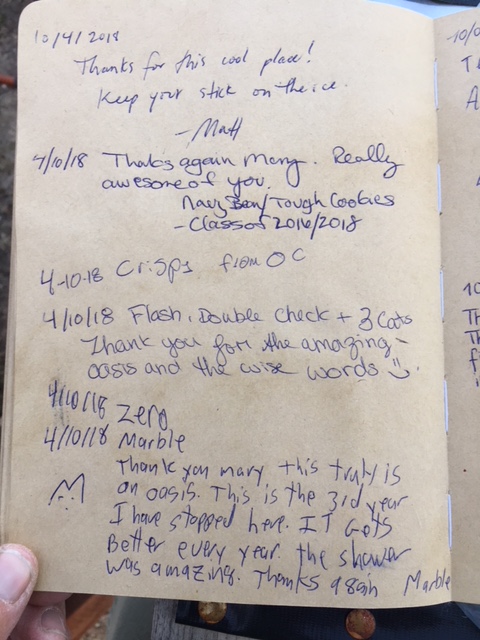 10/4/2018
Thanks for this cool place!
Keep your stick on the ice.
- Matt
4/10/18 Thanks again Mary. Really
awesome of you.
Navy Bean/Tough Cookies
- Class of 2016/2018
4-10-18 Crisps from OC
4/10/18 Flash, Double Check + 3 Cats
Thank you for the amazing
oasis and the wise words :)
4/10/18 Zero
4/10/18 Marble
Thank you mary this truly is
an oasis. This is the 3rd year
I have stopped here. IT Gets
Better every year. the shower
was amazing. Thanks again Marble
10/0
T
A
10
TH
Th
f